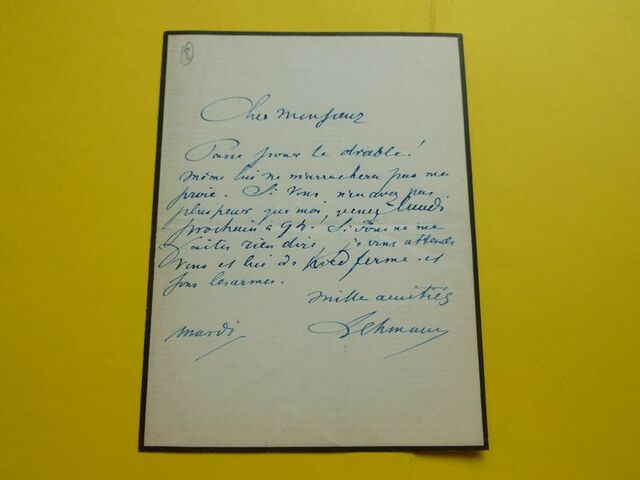 2
Cher monsieur
Passe pour le diable!
même lui ne m'arrachera pas ma
proie. Si vous n'en avez pas
plus peur que moi, venez lundi
prochain à 9h. Si vous ne me
faites rien dire, je vous attends
vous et lui de pied ferme et
sous les armes.
mille amitiés
mardi Lehmann